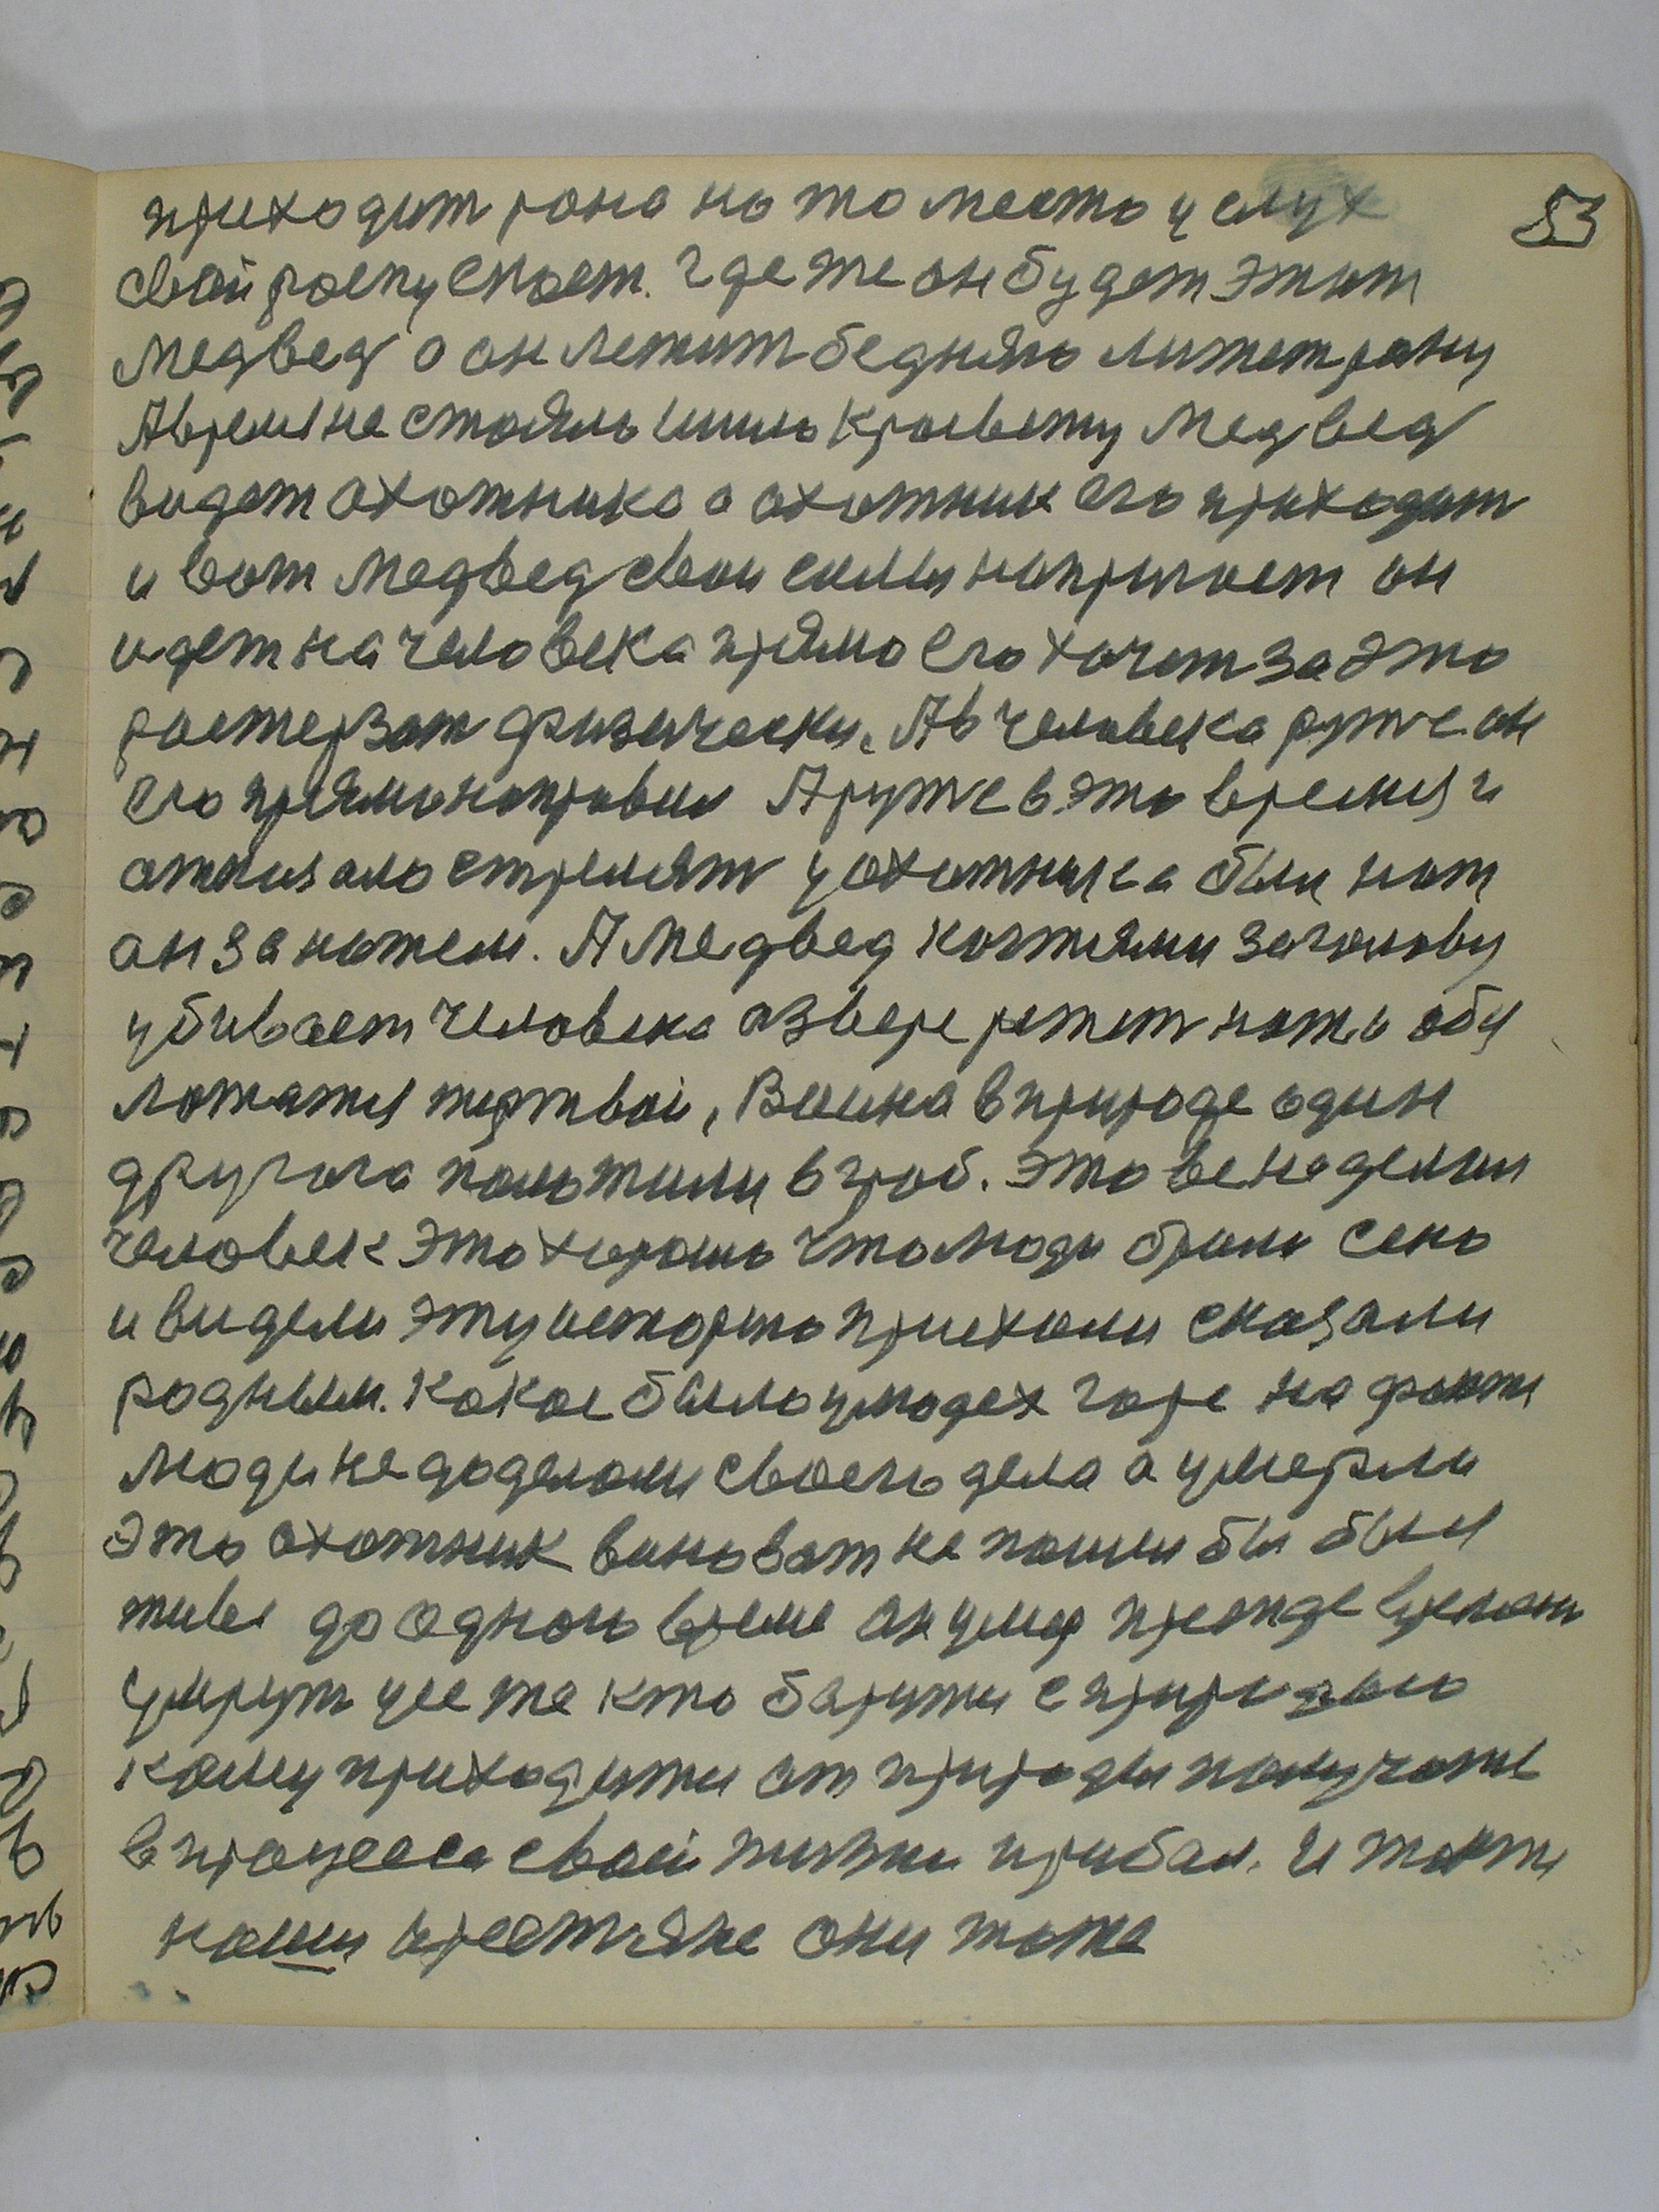 53
приходит рано но то место и слух
свой роспускает. где же он будет этот
Медвед а он лежит бедняго лижет рану
А время не стояло шило к росвету Медвед
видет охотника а охотник его приходит
и вот Медвед свои силы напрягает он
идет на человека прямо его хочет за это
ростерзат физически. А в человека руже он
его прямо направил А руже в это время и
отказало стрелят у охотника был нож
он за ножем. А Медвед когтями за голову
убивает человека а звере режет ножь обы
ложатся жертвой, Воина в природе один
другога положили в гроб. Это все наделал
человек это хорошо что люди брали сено
и видели эту историю приехали сказали
родным. Какое было у людех горе на факти
люди не доделали своего дела а умерли
Это охотник виноват не пошли бы был
живы до одного время он умер прежде времени
умрут усе те кто борится с природаю
кому приходится от природы получать
в процессе своей жизни прибал. И также
наши крестяне они тоже